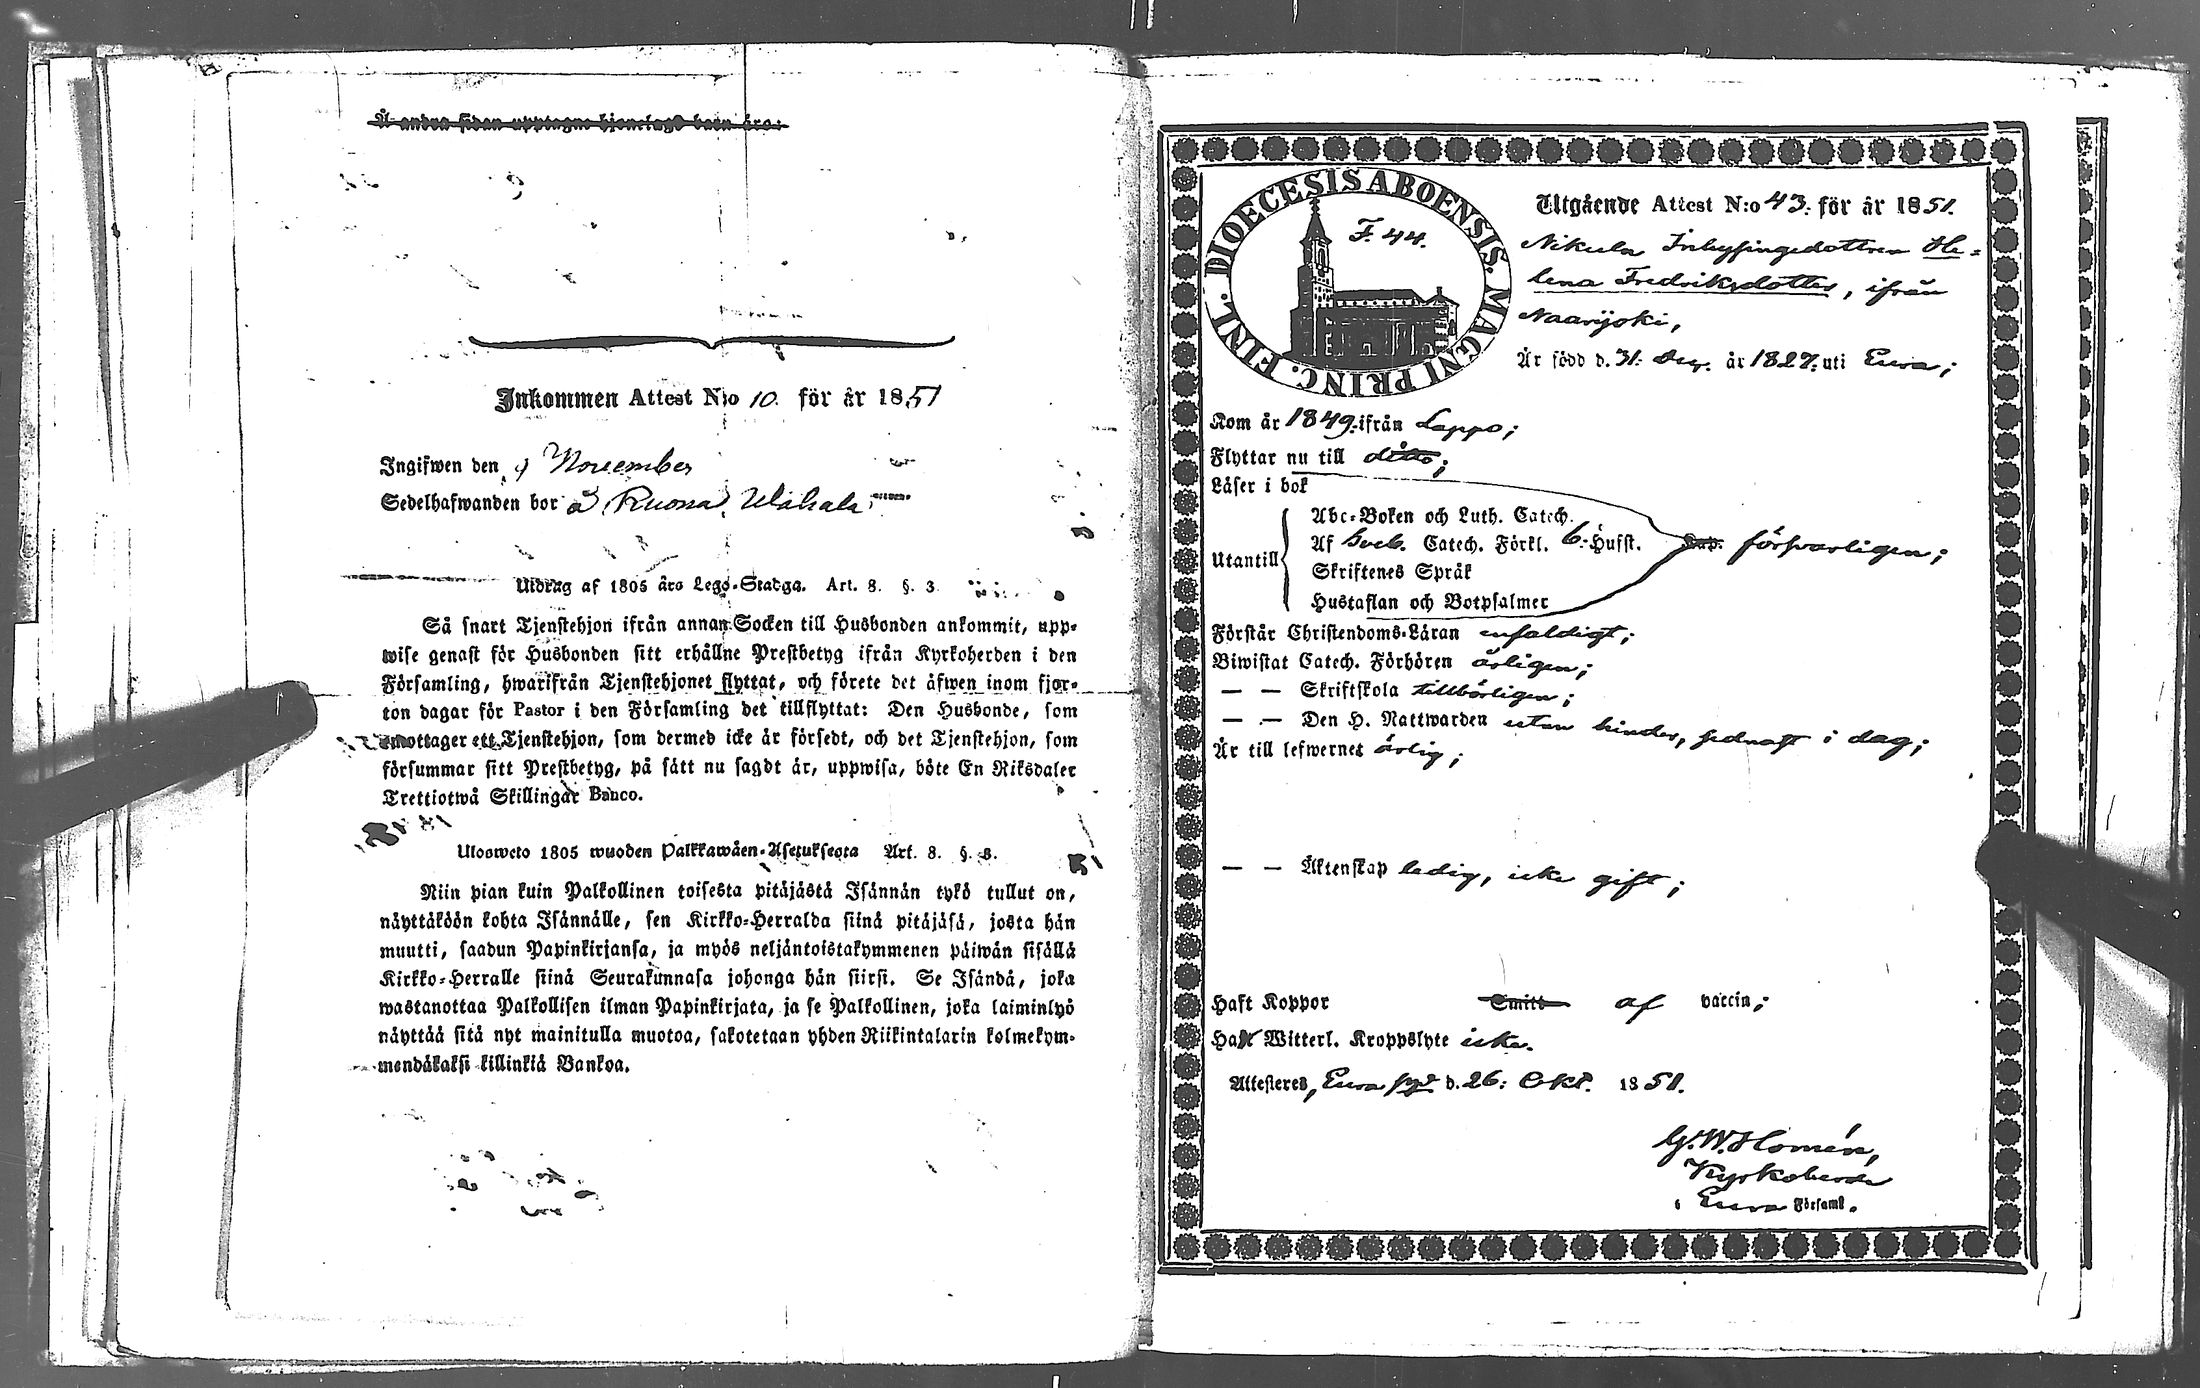 Å andra sidan upptagne hjonelags barn äro:
Inkommen Attest N:o 10. för år 1851
Ingifwen den 9 November
Sedelhafwanden bor å Ruona
Utdrag af 1805 års Lego-Stadga. Art. 8. §. 3.
Så snart Tjenstehjon ifrån annan Socken till Husbonden ankommit, upp-
wise genast för Husbonden sitt erhållne Prestbetyg ifrån Kyrkoherden i den
Församling, hwarifrån Tjenstehjonet flyttat, och förete det äfwen inom fjor-
ton dagar för Pastor i den Församling det tillflyttat: Den Husbonde, som
emottager ett Tjenstehjon, som dermed icke är försedt, och det Tjenstehjon, som
försummar sitt Prestbetyg, på sätt nu sagdt är, uppwisa, böte En Riksdaler
Trettiotwå Skillingar Banco.
Ulosweto 1805 wuoden Palkkawäen-Asetuksesta Art. 8. §. 3.
Niin pian kuin Palkollinen toisesta pitäjästä Isännän tykö tullut on,
näyttäköön kohta Isännälle, sen Kirkko-Herralda siinä pitäjäsä, josta hän
muutti, saadun Papinkirjansa, ja myös neljäntoistakymmenen päiwän sisällä
Kirkko-Herralle siinä Seurakunnasa johonga hän siirsi. Se Isändä, joka
wastanottaa Palkollisen ilman Papinkirjata, ja se Palkollinen, joka laiminlyö
näyttää sitä nyt mainitulla muotoa, sakotetaan yhden Riikintalarin kolmekym-
mendäkaksi killinkiä Bankoa.
DIOECESIS ABOENSIS. MAGNI PRINC. FINL.
F. 44.
Utgående Attest N:o 43. för år 1851.
Nikula Inhysingedottren He-
lena Fredriksdotter, ifrån
Naarijoki,
Är född d. 31. Dec. år 1827. uti Eura;
Kom år 1849. ifrån Lappo;
Flyttar nu till ditto;
Läser i bok
Utantill
Abc-Boken och Luth. Catech.
Af Sveb. Catech. Förkl. 6. Hufst. Cap. försvarligen;
Skriftenes Språk
Hustaflan och Botpsalmer
Förstår Christendoms-Läran enfaldigt;
Biwistat Catech. Förhören årligen;
— — Skriftskola tillbörligen;
— — Den H. Nattwarden utan hinder, sednast i dag;
Är till lefwernet ärlig;
— — Äktenskap ledig, icke gift;
Haft Koppor Smitt af vaccin;
Haft Witterl. Kroppslyte icke.
Attesteres, Eura pgd d. 26: Okt. 1851.
G. W. Homén,
Kyrkoherde
i Eura Församl.